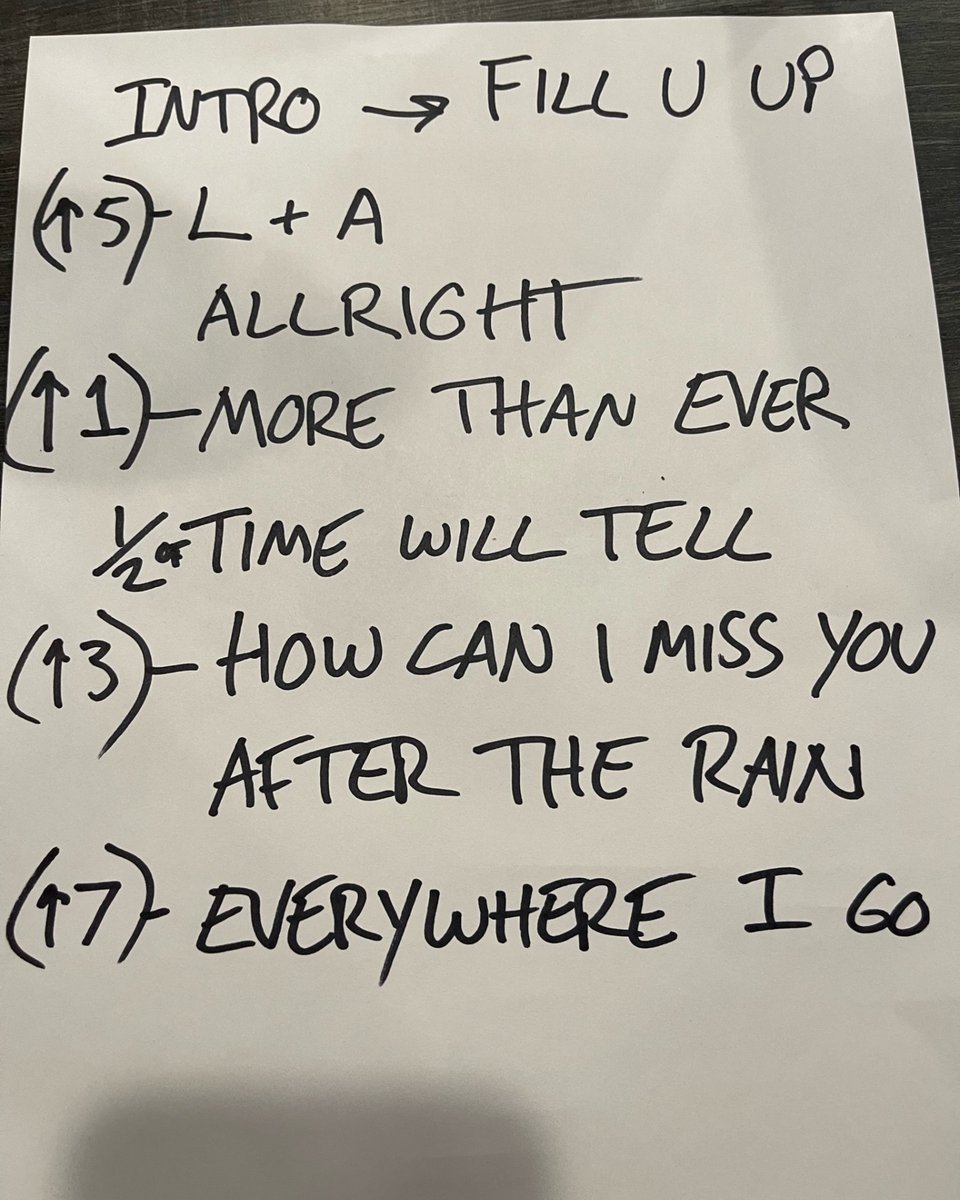 INTRO → FILL U UP
(↑5)-L + A
ALLRIGHT
(↑1)-MORE THAN EVER
1/2 OF TIME WILL TELL
(↑3)-HOW CAN I MISS YOU
AFTER THE RAIN
(↑7)-EVERYWHERE I GO